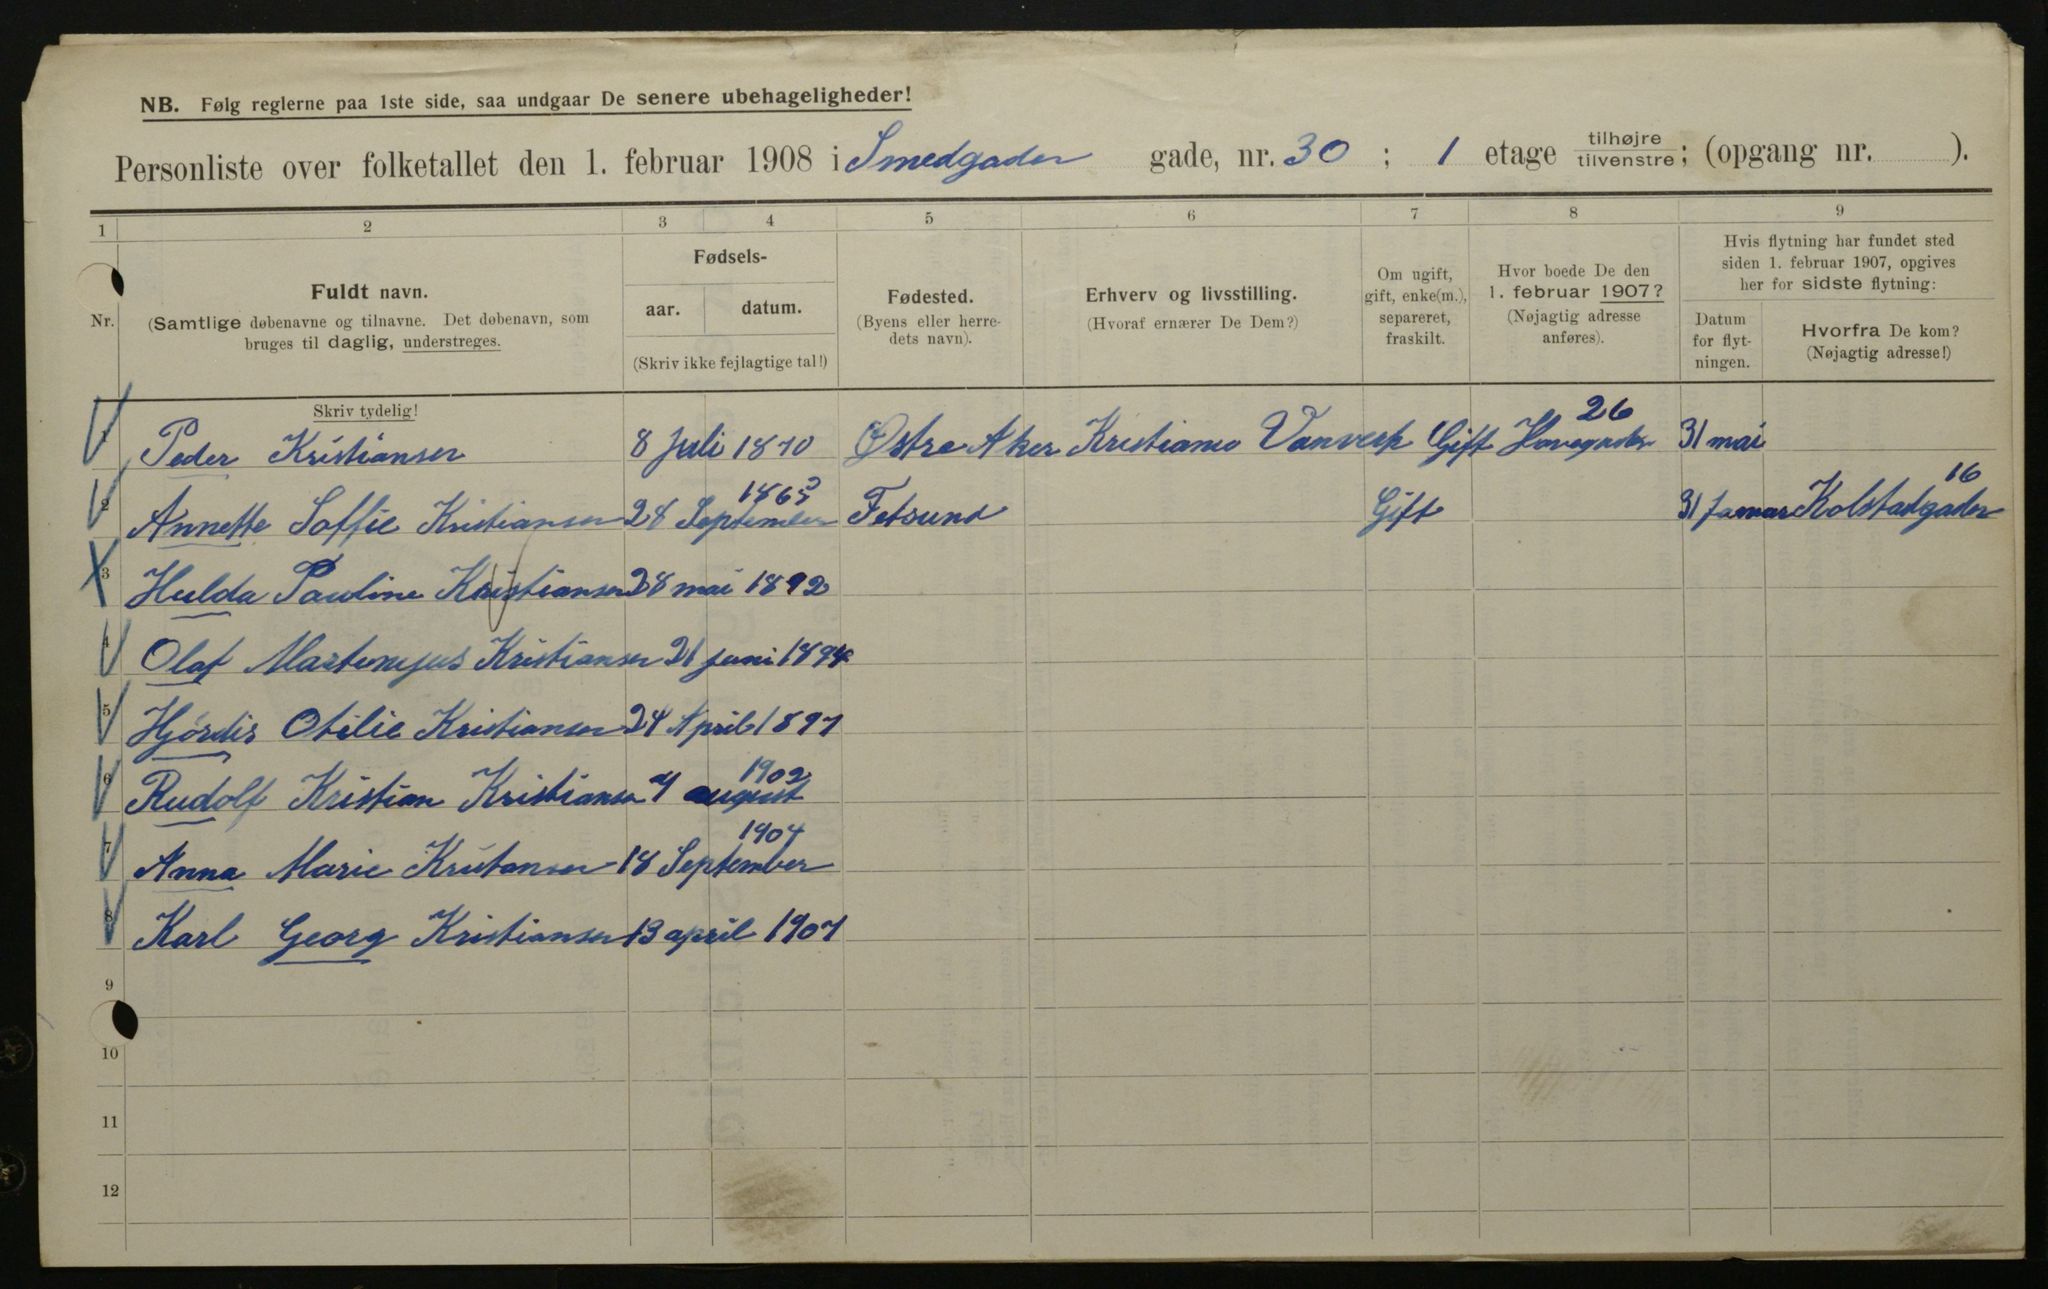 NB. Følg reglerne paa 1ste side, saa undgaar De senere ubehageligheder!
Personliste over folketallet den 1. februar 1908 i Smedgaden gade, nr. 30 ; 1 etage tilhøjre tilvenstre ; (opgang nr. ).
1 2 3 4 5 6 7 8 9
Nr.
Fuldt navn.
(Samtlige døbenavne og tilnavne. Det døbenavn, som
bruges til daglig, understreges.
Skriv tydelig!
Fødsels-
aar. datum.
(Skriv ikke fejlagtige tal!)
Fødested.
(Byens eller herre-
dets navn).
Erhverv og livsstilling.
(Hvoraf ernærer De Dem?)
Om ugift,
gift, enke(m.),
separeret,
fraskilt.
Hvor boede De den
1. februar 1907?
(Nøjagtig adresse
anføres).
Hvis flytning har fundet sted
siden 1. februar 1907, opgives
her for sidste flytning:
Datum
for flyt-
ningen.
Hvorfra De kom?
(Nøjagtig adresse!)
1 Peder Kristiansen 8 Juli 1870 Østre Aker Kristiania Vanverk Gift Havegaden 26 31 mai
2 Annette Soffie Kristiansen 28 September Fetsund Gift 31 Januar Kolstadgaden 16
3 Hulda Pauline Kristiansen 28 mai 1892
4 Olaf Kristiansen 21 juni 1894
5 Hjørdis Otilie Kristiansen 24 April 1897
6 Rudolf Kristian Kristiansen 4 august 1902
7 Anna Marie Kristansen 18 September 1904
8 Karl Georg Kristiansen 13 april 1907
9
10
11
12